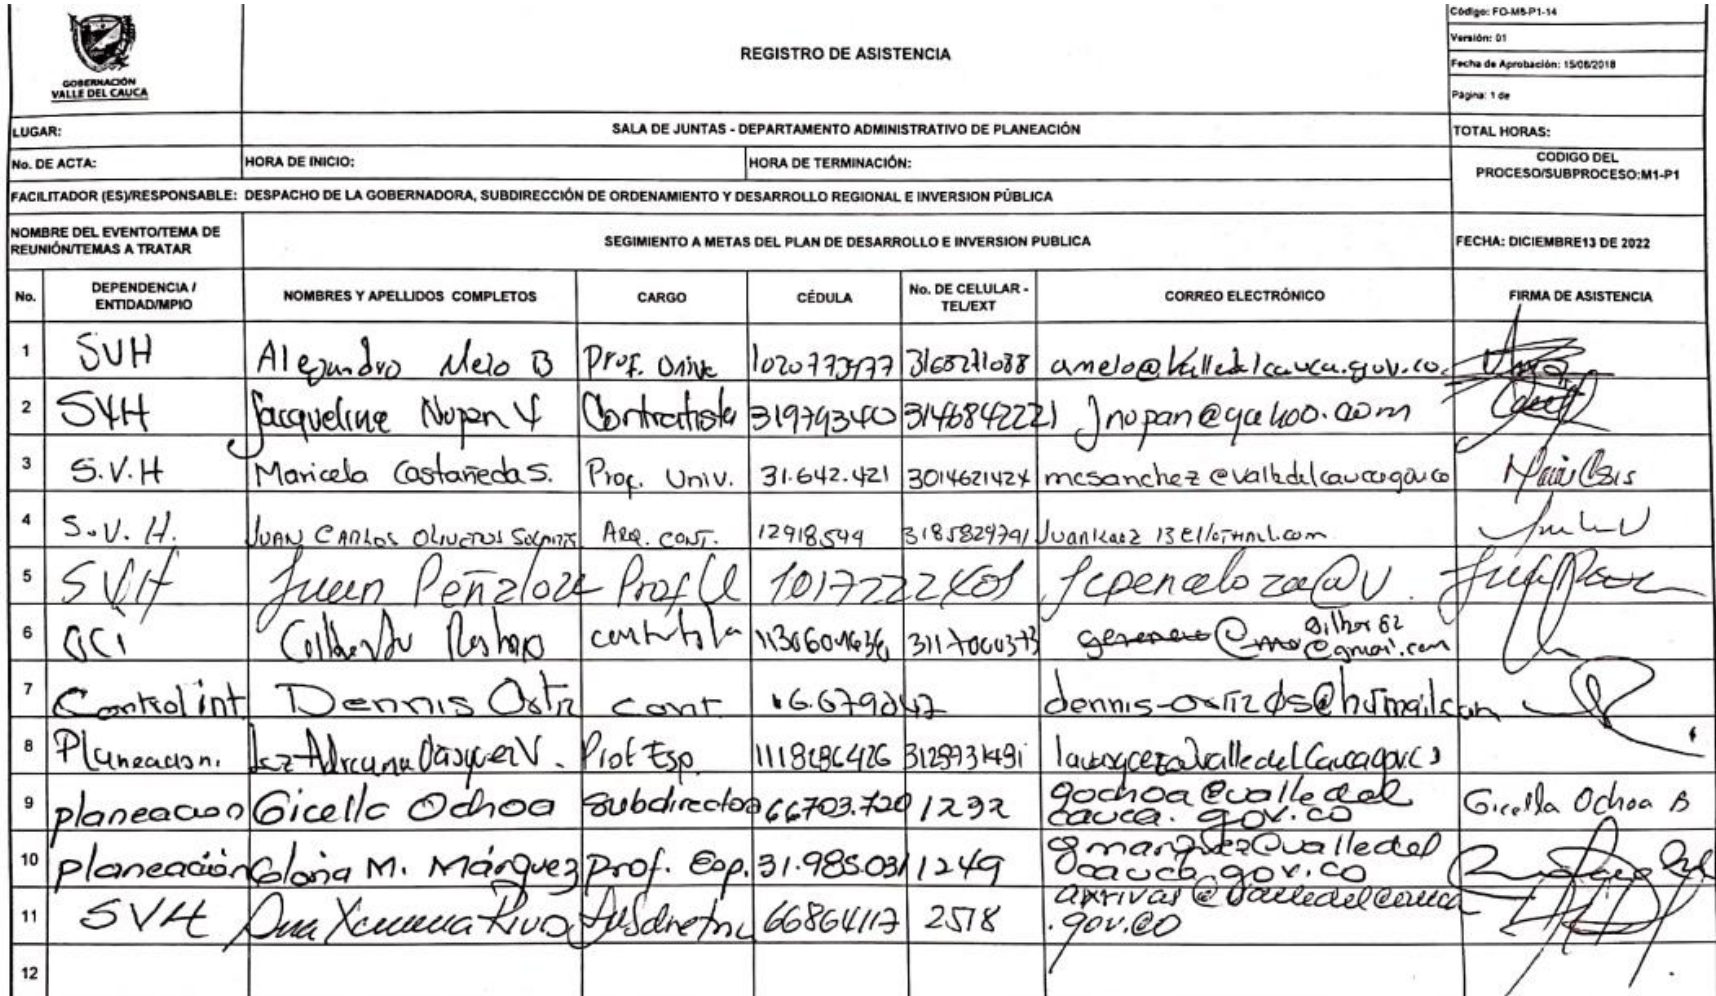 GOBERNACIÓN
VALLE DEL CAUCA
REGISTRO DE ASISTENCIA
Código: FO-M5-P1-14
Versión: 01
Fecha de Aprobación: 15/08/2018
Página: 1 de
LUGAR: SALA DE JUNTAS - DEPARTAMENTO ADMINISTRATIVO DE PLANEACIÓN TOTAL HORAS:
No. DE ACTA: HORA DE INICIO: HORA DE TERMINACIÓN: CODIGO DEL
PROCESO/SUBPROCESO:M1-P1
FACILITADOR (ES)/RESPONSABLE: DESPACHO DE LA GOBERNADORA, SUBDIRECCIÓN DE ORDENAMIENTO Y DESARROLLO REGIONAL E INVERSION PÚBLICA
NOMBRE DEL EVENTO/TEMA DE
REUNIÓN/TEMAS A TRATAR
SEGIMIENTO A METAS DEL PLAN DE DESARROLLO E INVERSION PUBLICA
FECHA: DICIEMBRE13 DE 2022
No. DEPENDENCIA /
ENTIDAD/MPIO
NOMBRES Y APELLIDOS COMPLETOS CARGO CÉDULA No. DE CELULAR -
TEL/EXT
CORREO ELECTRÓNICO FIRMA DE ASISTENCIA
1 SVH Alejandro Melo B Prof. amelo@valledelcauca.gov.co.
2 SVH Jacqueline Nopan V Contratista 31979340 3146842221 Jnopan@yahoo.com
3 S.V.H Maricela Castañeda S. Prof. Univ. 31.642.421 3014621424 mcsanchez@valledelcauca.gov.co
4 S.V.H. JUAN CARLOS ARQ. CONT. 12918544 3185829791
5 SVH Juan Peñaloza Prof U jcpenaloza@V.
6 OCI contratista @gmail.com
7 Control int Dennis Ortiz cont
8 Planeacion. Luz Adriana Vasquez V. Prof Esp.
9 planeacion Gicella Ochoa Subdirectora 66703.720 1292 gochoa@valledel Gicella Ochoa B
cauca.gov.co
10 planeación Gloria M. Márquez prof. Esp. 31.985.031 1249 gmarquez@valledel
cauca.gov.co
11 SVH Ana Ximena Rivas 66864117 2518 axrivas@valledelcauca
.gov.co
12